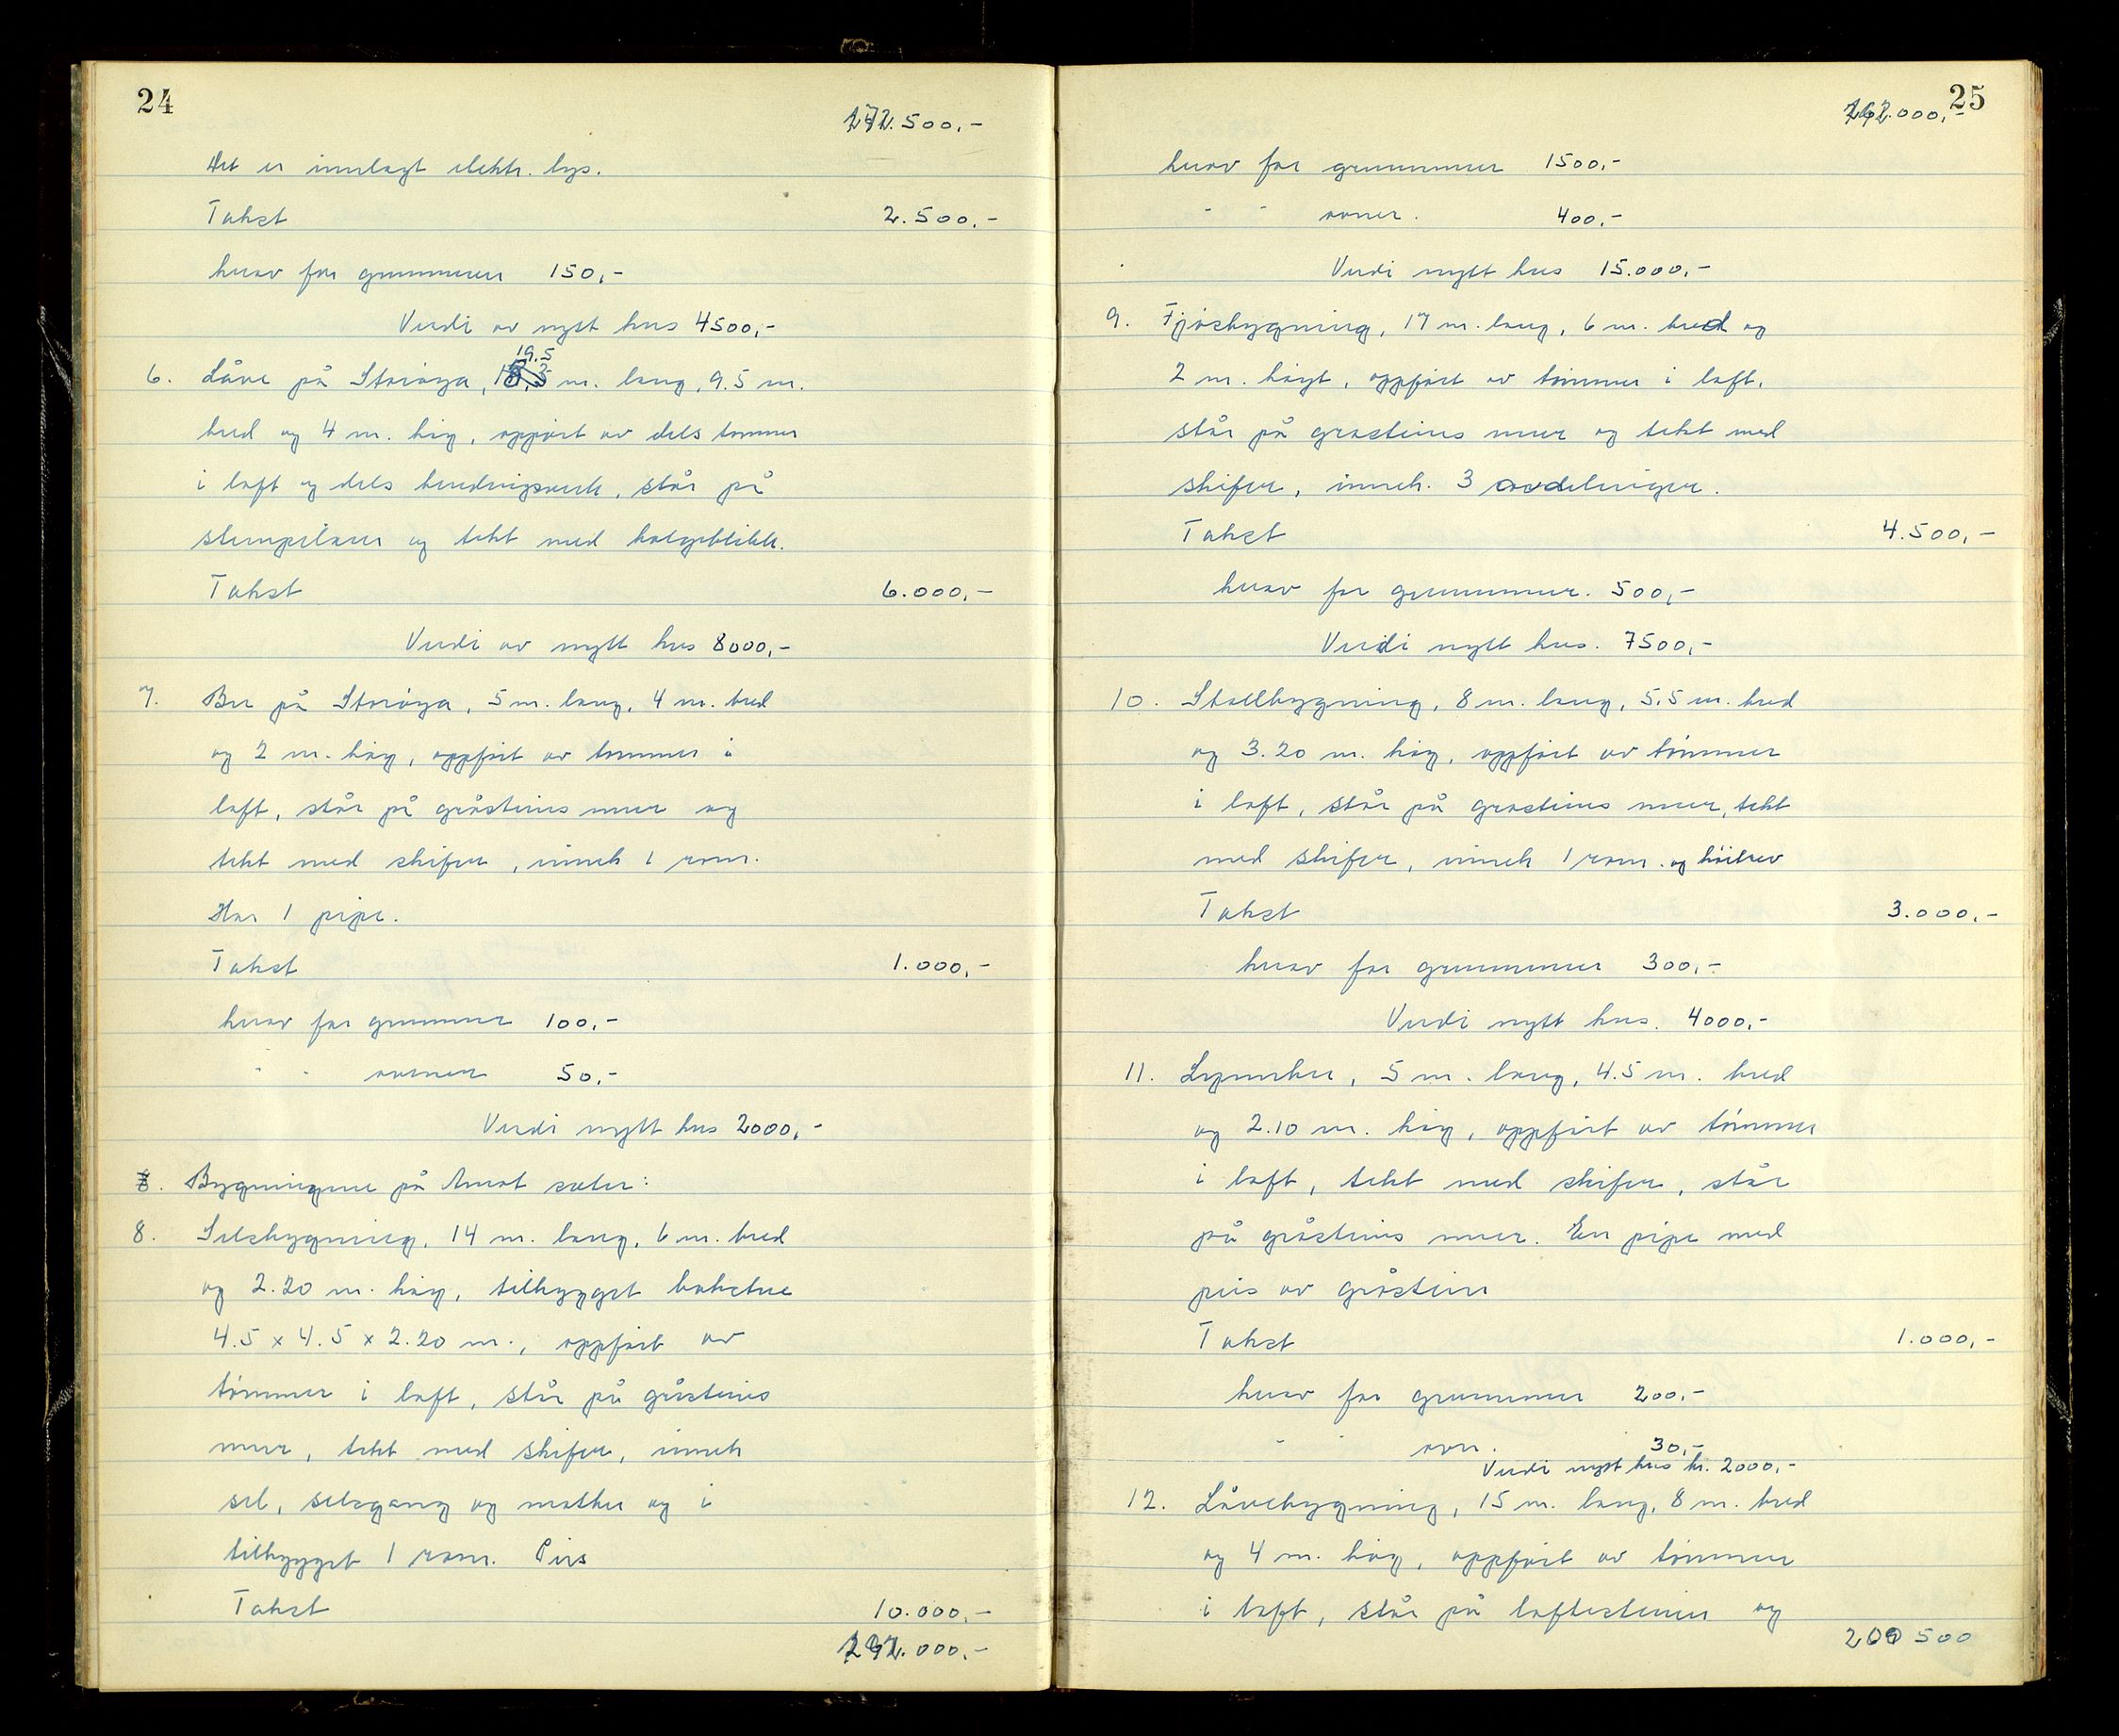 24
172.500,-
Det er innlagt elektr. lys.
Takst 2.500,-
herav for grunnmuren 150,-
Verdi av nytt hus 4500,-
19.5
6. Låve på Storøya, m. lang, 9.5 m.
bred og 4 m. høg, oppført av dels tømmer
i laft og dels bindingsverk, står på
steinpilarer og tekt med bølgeblikk.
Takst 6.000,-
Verdi av nytt hus 8000,-
7. Bur på Storøya, 5 m. lang, 4 m. bred
og 2 m. høg, oppført av tømmer i
laft, står på gråsteins mur og
tekt med skifer, inneh 1 rom.
Har 1 pipe.
Takst 1.000,-
herav for grunnmur 100,-
" " ovnen 50,-
Verdi nytt hus 2000,-
8. Bygningene på seter:
8. Selsbygning, 14 m. lang, 6 m. bred
og 2.20 m. høg, tilbygget bakstue
4.5 x 4.5 x 2.20 m., oppført av
tømmer i laft, står på gråsteins
mur, tekt med skifer, inneh
sel, selsgang og matbu og i
tilbygget 1 rom. Peis
Takst 10.000,-
192.000,-
25
192.000,-
herav for grunnmur 1500,-
" " ovner. 400,-
Verdi nytt hus 15.000,-
9. Fjøsbygning, 17 m. lang, 6 m. bred og
2 m. høgt, oppført av tømmer i laft,
står på gråsteins mur og tekt med
skifer, inneh. 3 avdelinger.
Takst 4.500,-
herav for grunnmur. 500,-
Verdi nytt hus. 7500,-
10. Stallbygning, 8 m. lang, 5.5 m. bred
og 3.20 m. høg, oppført av tømmer
i laft, står på gråsteins mur, tekt
med skifer, inneh 1 rom. og
Takst 3.000,-
herav for grunnmur 300,-
Verdi nytt hus. 4000,-
11. 5 m. lang, 4.5 m. bred
og 2.10 m. høg, oppført av tømmer
i laft, tekt med skifer, står
på gråsteins mur. En pipe med
peis av gråstein
Takst 1.000,-
herav for grunnmur 200,-
" ovn. 30,-
Verdi nytt hus kr. 2000,-
12. Låvebygning, 15 m. lang, 8 m. bred
og 4 m. høg, oppført av tømmer
i laft, står på laftesteiner og
200 500